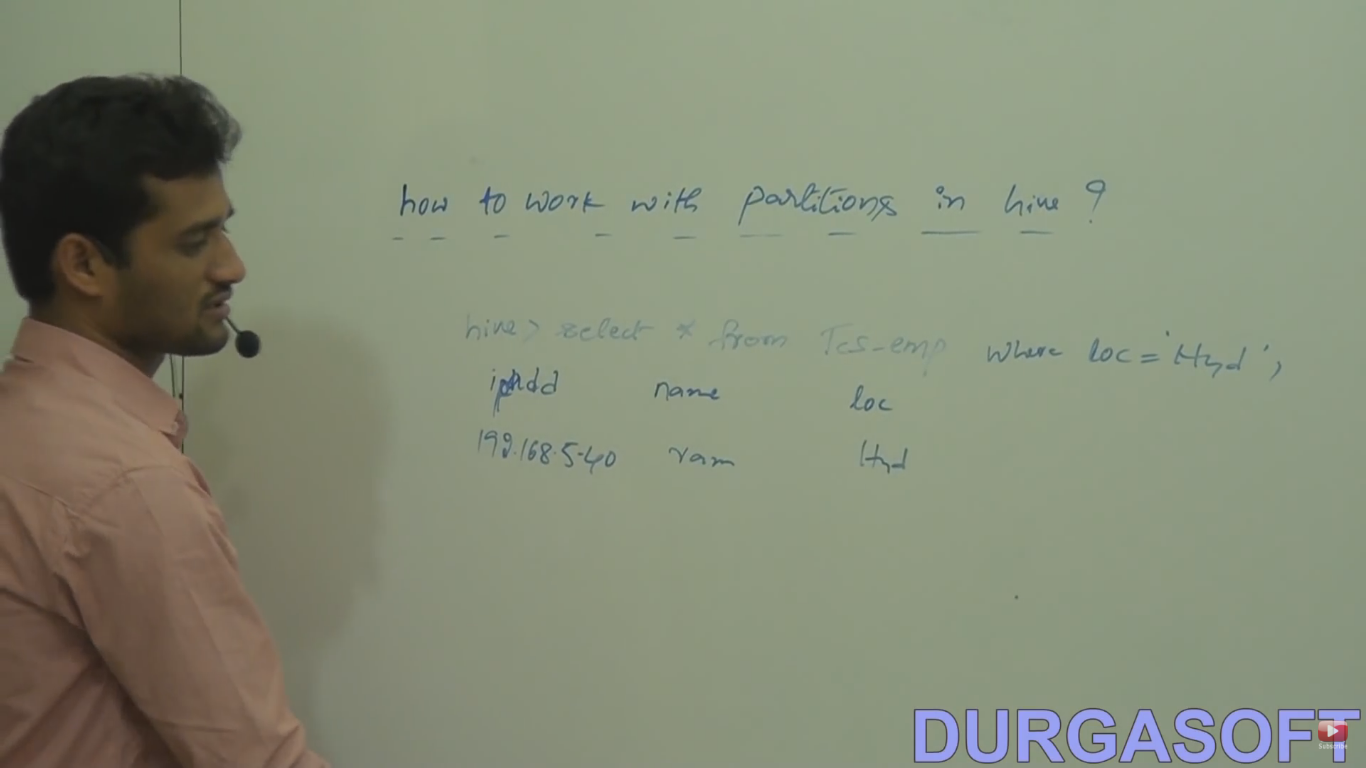 how to work with partitions in hive ?
hive> select * from Tcs_emp where loc = 'Hyd',
ipadd name loc
192.168.5.40 ram Hyd
DURGASOFT
Subscribe